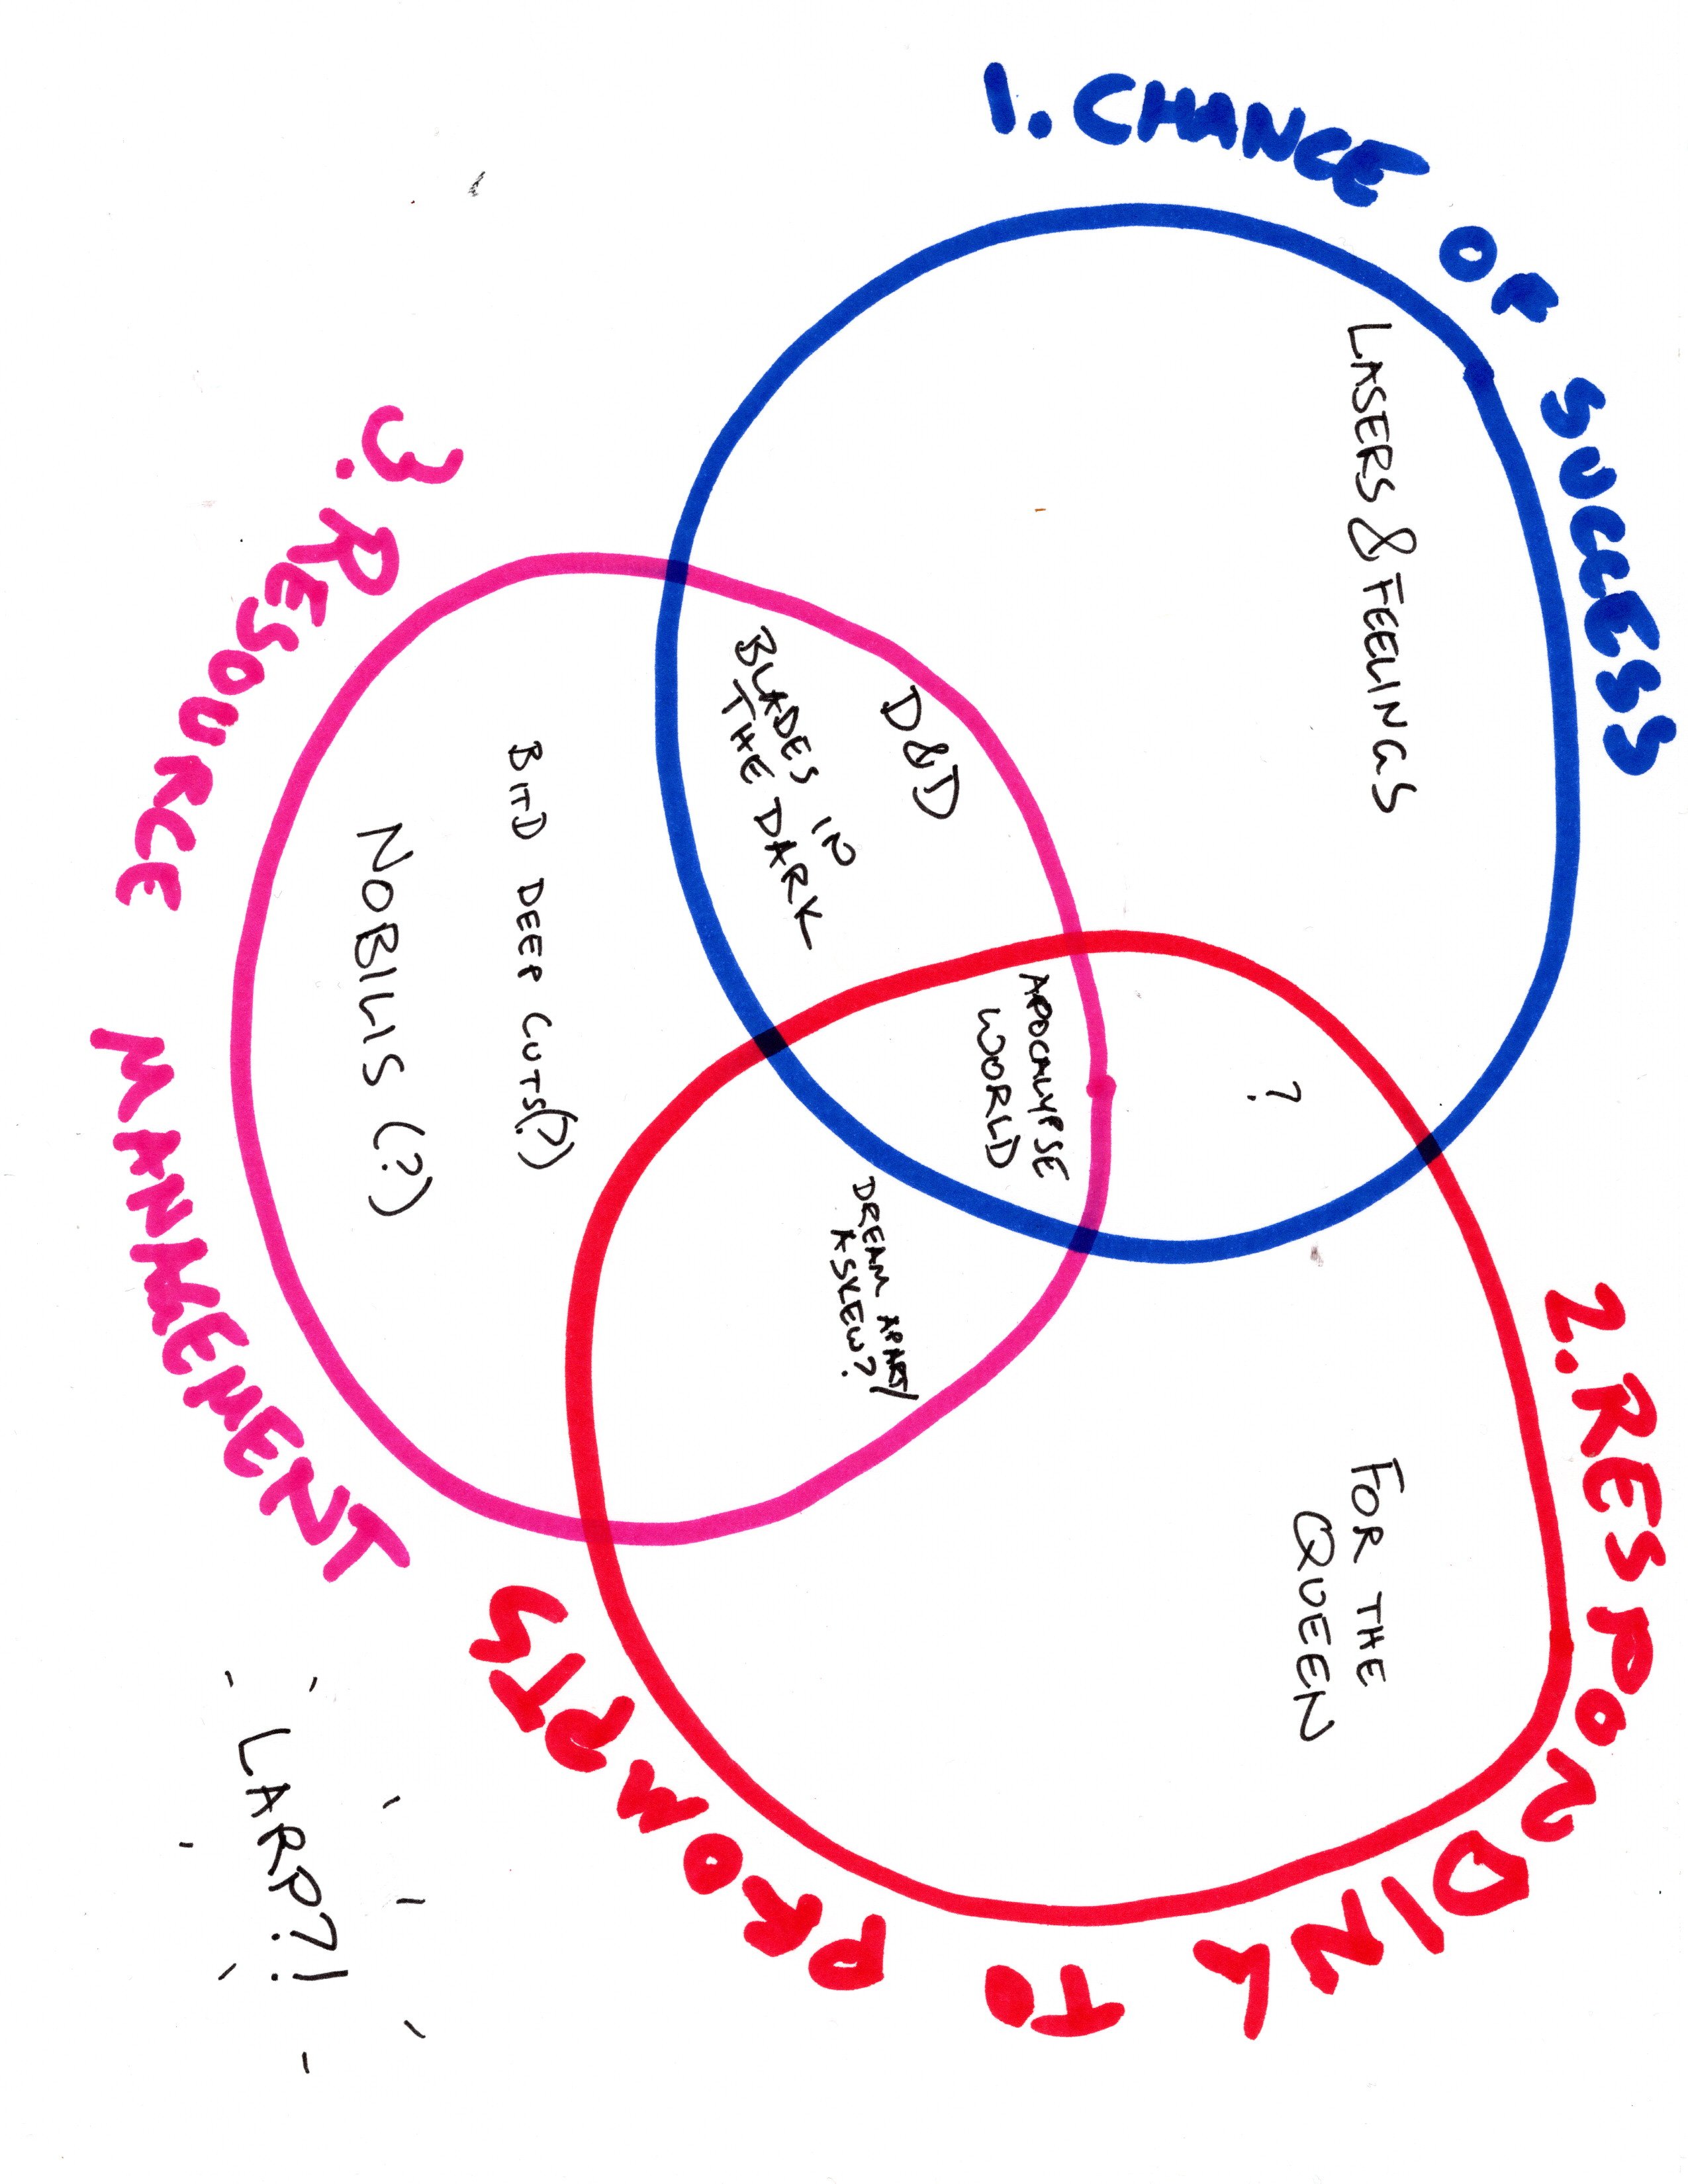 1. CHANCE OF SUCCESS
2. RESPONDING TO PROMPTS
3. RESOURCE MANAGEMENT
LASERS & FEELINGS
D&D
BLADES IN
THE DARK
?
APOCALYPSE
WORLD
FOR THE
QUEEN
DREAM APART/
ASKEW?
BITD DEEP CUTS(?)
NOBILIS (?)
LARP?!